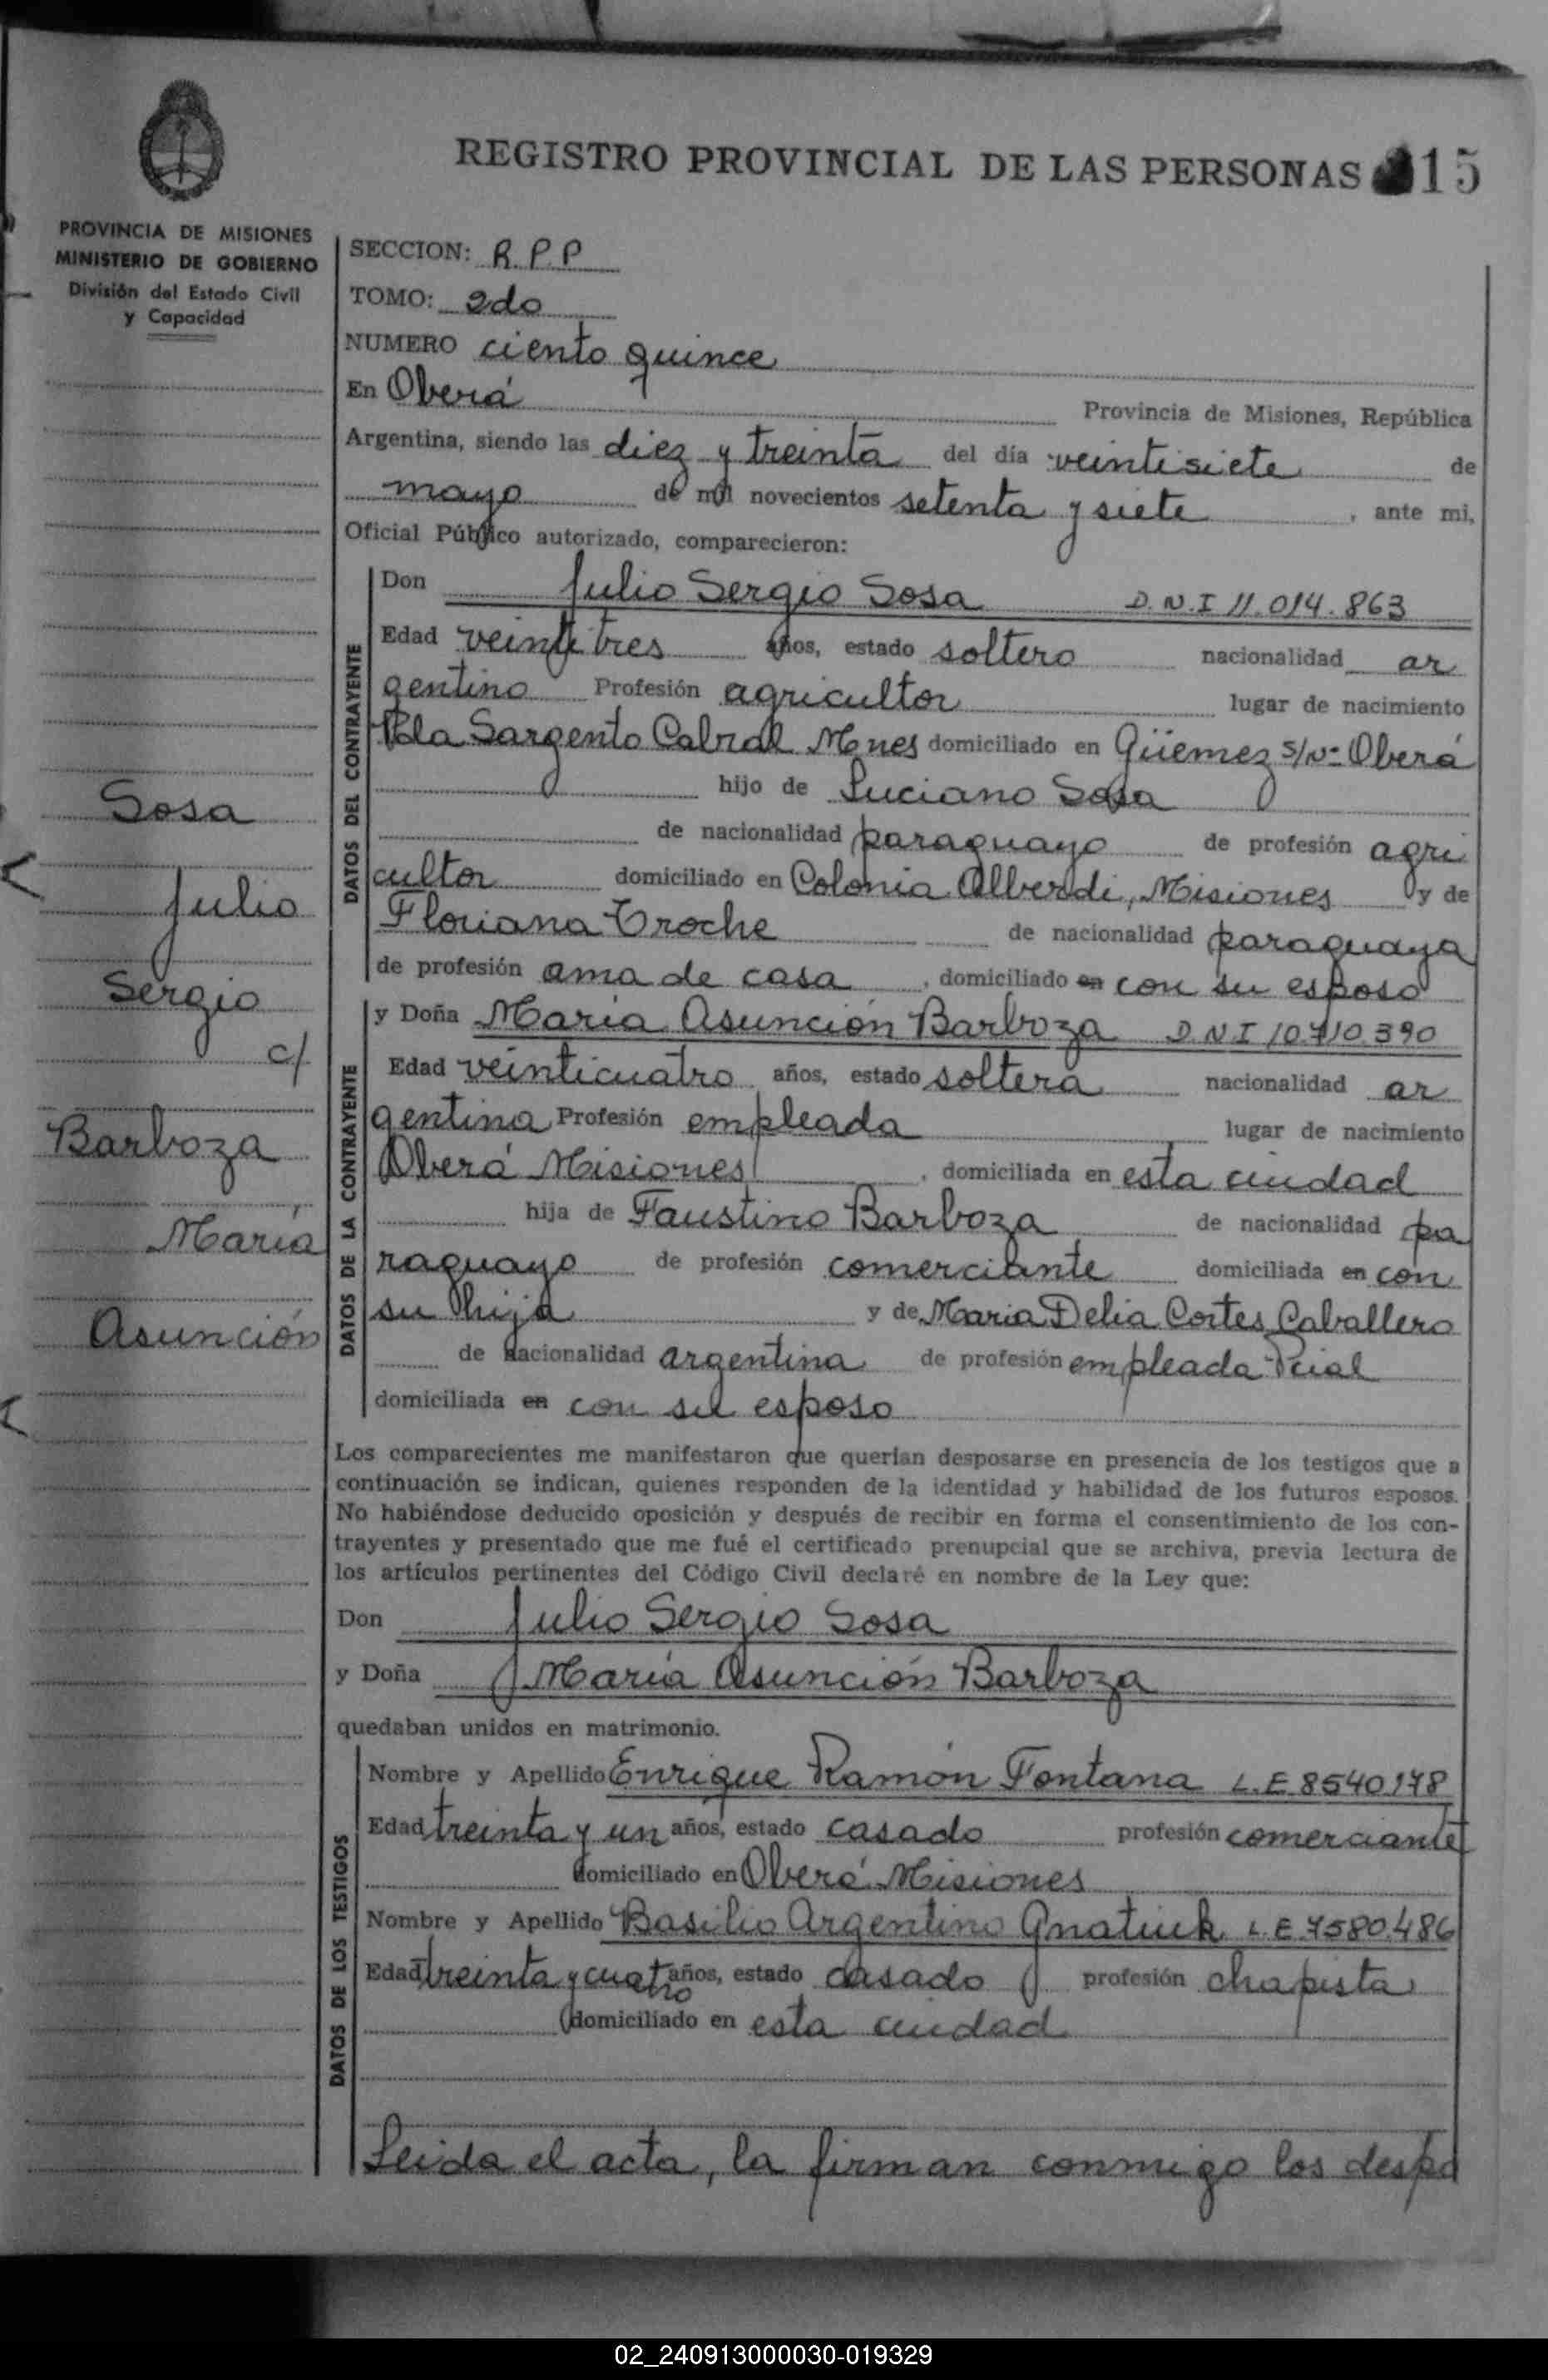 REGISTRO PROVINCIAL DE LAS PERSONAS 15
PROVINCIA DE MISIONES
MINISTERIO DE GOBIERNO
División del Estado Civil
y Capacidad
SECCION: R.P.P
TOMO: 2do
NUMERO ciento quince
En Oberá Provincia de Misiones, República
Argentina, siendo las diez y treinta del día veintisiete de
mayo de mil novecientos setenta y siete, ante mi,
Oficial Público autorizado, comparecieron:
DATOS DEL CONTRAYENTE
Don Julio Sergio Sosa D.N.I 11.014.863
Edad veintitres años, estado soltero nacionalidad ar
gentino Profesión agricultor lugar de nacimiento
Pdla Sargento Cabral Mnes domiciliado en Güemez s/nº Oberá
hijo de Luciano Sosa
de nacionalidad paraguayo de profesión agri
cultor domiciliado en Colonia Alberdi, Misiones y de
Floriana Troche de nacionalidad paraguaya
de profesión ama de casa, domiciliado en con su esposo
DATOS DE LA CONTRAYENTE
y Doña María Asunción Barboza D.N.I 10.710.390
Edad veinticuatro años, estado soltera nacionalidad ar
gentina Profesión empleada lugar de nacimiento
Oberá Misiones, domiciliada en esta ciudad
hija de Faustino Barboza de nacionalidad pa
raguayo de profesión comerciante domiciliada en con
su hija y de Maria Delia Cortes Caballero
de nacionalidad argentina de profesión empleada Pcial
domiciliada en con su esposo
Sosa
Julio
Sergio
c/
Barboza
María
Asunción
Los comparecientes me manifestaron que querían desposarse en presencia de los testigos que a
continuación se indican, quienes responden de la identidad y habilidad de los futuros esposos.
No habiéndose deducido oposición y después de recibir en forma el consentimiento de los con-
trayentes y presentado que me fué el certificado prenupcial que se archiva, previa lectura de
los artículos pertinentes del Código Civil declaré en nombre de la Ley que:
Don Julio Sergio Sosa
y Doña María Asunción Barboza
quedaban unidos en matrimonio.
DATOS DE LOS TESTIGOS
Nombre y Apellido Enrique Ramón Fontana L.E. 8540.178
Edad treinta y un años, estado casado profesión comerciante
domiciliado en Oberá Misiones
Nombre y Apellido Basilio Argentino Gnatiuk L.E. 7580.486
Edad treinta y cuatro años, estado casado profesión chapista
domiciliado en esta ciudad
Leida el acta, la firman conmigo los despo
02_240913000030-019329